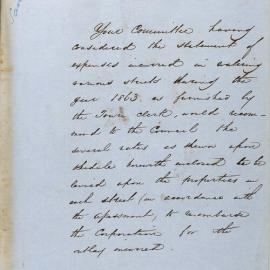 Your Committee having
considered the statement of
expenses incurred in watering
various streets during the
year 1863. as furnished by
the Town Clerk, would recom-
mend to the Council the
several rates as shewn upon
schedule herewith enclosed to be
levied upon the properties in
each street in accordance with
the assessment, to reimburse
the Corporation for the
outlay incurred.